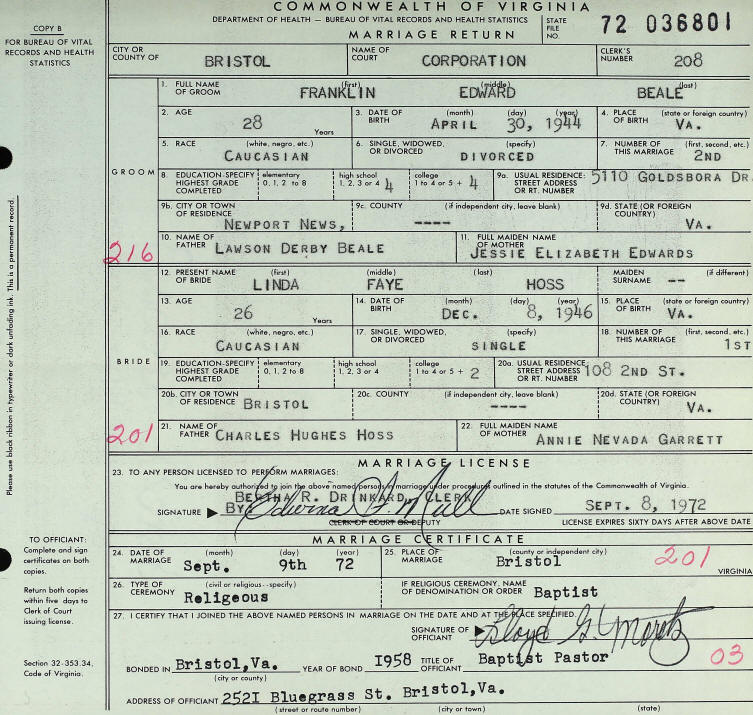 COMMONWEALTH OF VIRGINIA
DEPARTMENT OF HEALTH — BUREAU OF VITAL RECORDS AND HEALTH STATISTICS
MARRIAGE RETURN
STATE FILE NO. 72 036801
COPY B
FOR BUREAU OF VITAL RECORDS AND HEALTH STATISTICS
CITY OR COUNTY OF BRISTOL NAME OF COURT CORPORATION CLERK'S NUMBER 208
GROOM
1. FULL NAME OF GROOM (first) FRANKLIN (middle) EDWARD (last) BEALE
2. AGE 28 Years 3. DATE OF BIRTH (month) APRIL (day) 30, (year) 1944 4. PLACE OF BIRTH (state or foreign country) VA.
5. RACE (white, negro, etc.) CAUCASIAN 6. SINGLE, WIDOWED, OR DIVORCED (specify) DIVORCED 7. NUMBER OF THIS MARRIAGE (first, second, etc.) 2ND
8. EDUCATION-SPECIFY HIGHEST GRADE COMPLETED elementary 0, 1, 2 to 8 high school 1, 2, 3 or 4 4 college 1 to 4 or 5 + 4 9a. USUAL RESIDENCE: STREET ADDRESS OR RT. NUMBER 5110 GOLDSBORA DR.
9b. CITY OR TOWN OF RESIDENCE NEWPORT NEWS, 9c. COUNTY (if independent city, leave blank) ---- 9d. STATE (OR FOREIGN COUNTRY) VA.
216 10. NAME OF FATHER LAWSON DERBY BEALE 11. FULL MAIDEN NAME OF MOTHER JESSIE ELIZABETH EDWARDS
BRIDE
12. PRESENT NAME OF BRIDE (first) LINDA (middle) FAYE (last) HOSS MAIDEN SURNAME (if different) --
13. AGE 26 Years 14. DATE OF BIRTH (month) DEC. (day) 8, (year) 1946 15. PLACE OF BIRTH (state or foreign country) VA.
16. RACE (white, negro, etc.) CAUCASIAN 17. SINGLE, WIDOWED, OR DIVORCED (specify) SINGLE 18. NUMBER OF THIS MARRIAGE (first, second, etc.) 1ST
19. EDUCATION-SPECIFY HIGHEST GRADE COMPLETED elementary 0, 1, 2 to 8 high school 1, 2, 3 or 4 college 1 to 4 or 5 + 2 20a. USUAL RESIDENCE: STREET ADDRESS OR RT. NUMBER 108 2ND ST.
20b. CITY OR TOWN OF RESIDENCE BRISTOL 20c. COUNTY (if independent city, leave blank) ---- 20d. STATE (OR FOREIGN COUNTRY) VA.
201 21. NAME OF FATHER CHARLES HUGHES HOSS 22. FULL MAIDEN NAME OF MOTHER ANNIE NEVADA GARRETT
MARRIAGE LICENSE
23. TO ANY PERSON LICENSED TO PERFORM MARRIAGES:
You are hereby authorized to join the above named persons in marriage under procedures outlined in the statutes of the Commonwealth of Virginia.
BERTHA R. DRINKARD, CLERK
SIGNATURE BY Edwina DATE SIGNED SEPT. 8, 1972
CLERK OF COURT OR DEPUTY LICENSE EXPIRES SIXTY DAYS AFTER ABOVE DATE
MARRIAGE CERTIFICATE
24. DATE OF MARRIAGE (month) Sept. (day) 9th (year) 72 25. PLACE OF MARRIAGE (county or independent city) Bristol 201 VIRGINIA
26. TYPE OF CEREMONY (civil or religious--specify) Religeous IF RELIGIOUS CEREMONY, NAME OF DENOMINATION OR ORDER Baptist
27. I CERTIFY THAT I JOINED THE ABOVE NAMED PERSONS IN MARRIAGE ON THE DATE AND AT THE PLACE SPECIFIED.
SIGNATURE OF OFFICIANT Lloyd G. Moretz
BONDED IN Bristol,Va. (city or county) YEAR OF BOND I958 TITLE OF OFFICIANT Baptist Pastor 03
ADDRESS OF OFFICIANT 252I Bluegrass St. Bristol,Va.
(street or route number) (city or town) (state)
Please use black ribbon in typewriter or dark unfading ink. This is a permanent record.
TO OFFICIANT:
Complete and sign certificates on both copies.
Return both copies within five days to Clerk of Court issuing license.
Section 32-353.34, Code of Virginia.